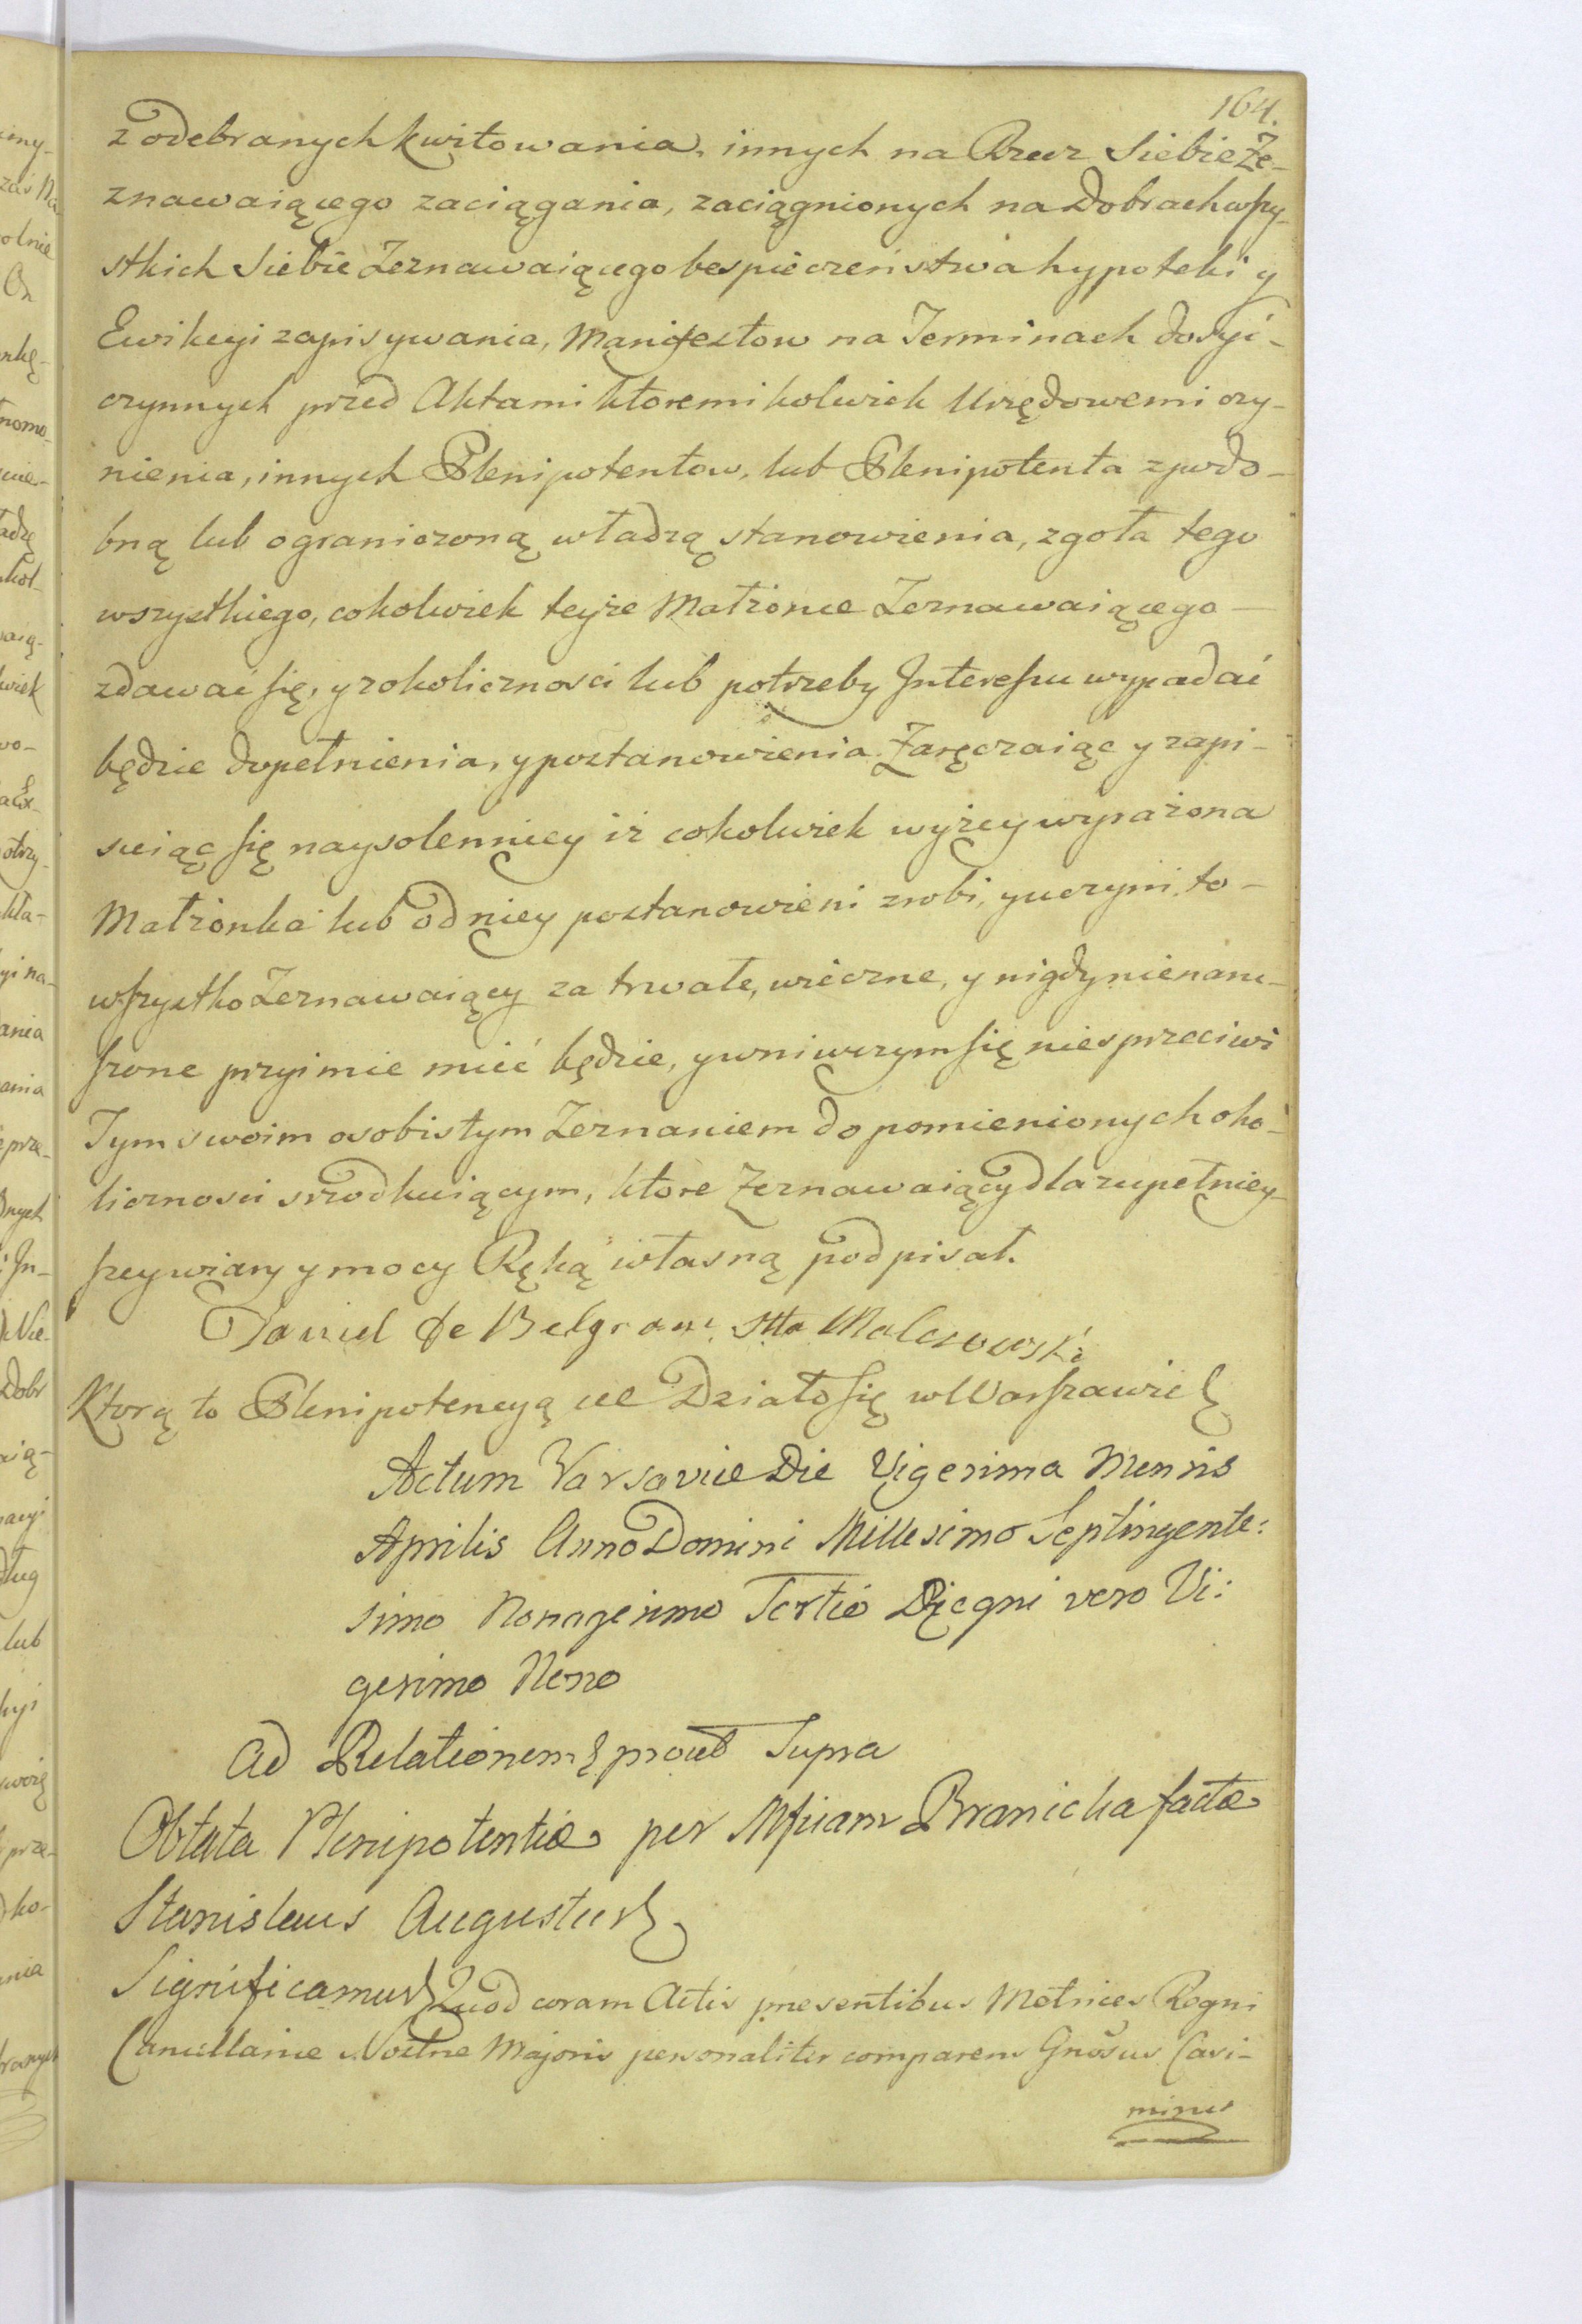 164.
z odebranych kwitowania, innych na Rzecz Siebie Ze-
znawaiącego zaciągania, zaciągnionych na Dobrach wszy-
stkich Siebie Zeznawaiącego bespieczeństwa hypoteki y
Ewikcyi zapisywania, Manifestow na Terminach dosyć-
czynnych przed Aktami ktoremikolwiek Urzędowemi czy-
nienia, innych Plenipotentow, lub Plenipotenta z podo-
bną lub ograniczoną władzą stanowienia, zgoła tego
wszystkiego, cokolwiek teyże Małżonce Zeznawaiącego
zdawać się, y z okoliczności lub potrzeby Interessu wypadać
będzie dopełnienia, y postanowienia. Zaręczaiąc y zapi-
suiąc się naysolenniey iż cokolwiek wyżey wyrażona
Małżonka lub od niey postanowieni zrobi, y uczyni, to
wszystko Zeznawaiący za trwałe, wieczne, y nigdy nienaru-
szone przyimie mieć będzie, y w niwczym się niesprzeciwi
Tym swoim osobistym Zeznaniem do pomienionych oko-
liczności srzodkuiącym, ktore Zeznawaiący dla zupełniey-
szey wiary y mocy Ręką własną podpisał.
Daniel de Belgram Stta Malczowski
Ktorą to Plenipotencyą etc Działo się w Warszawie
Actum Varsaviæ Die Vigesima Mensis
Aprilis Anno Domini Millesimo Septingente:
simo Nonagesimo Tertio Regni vero Vi:
gesimo Nono
Ad Relationem prout Supra
Oblata Plenipotentiæ per Mficam Branicka factæ
Stanislaus Augustus
Significamus Quod coram Actis præsentibus Metrices Regni
Cancellariæ Nostræ Majoris personaliter comparens Gnosus Casi-
mirus